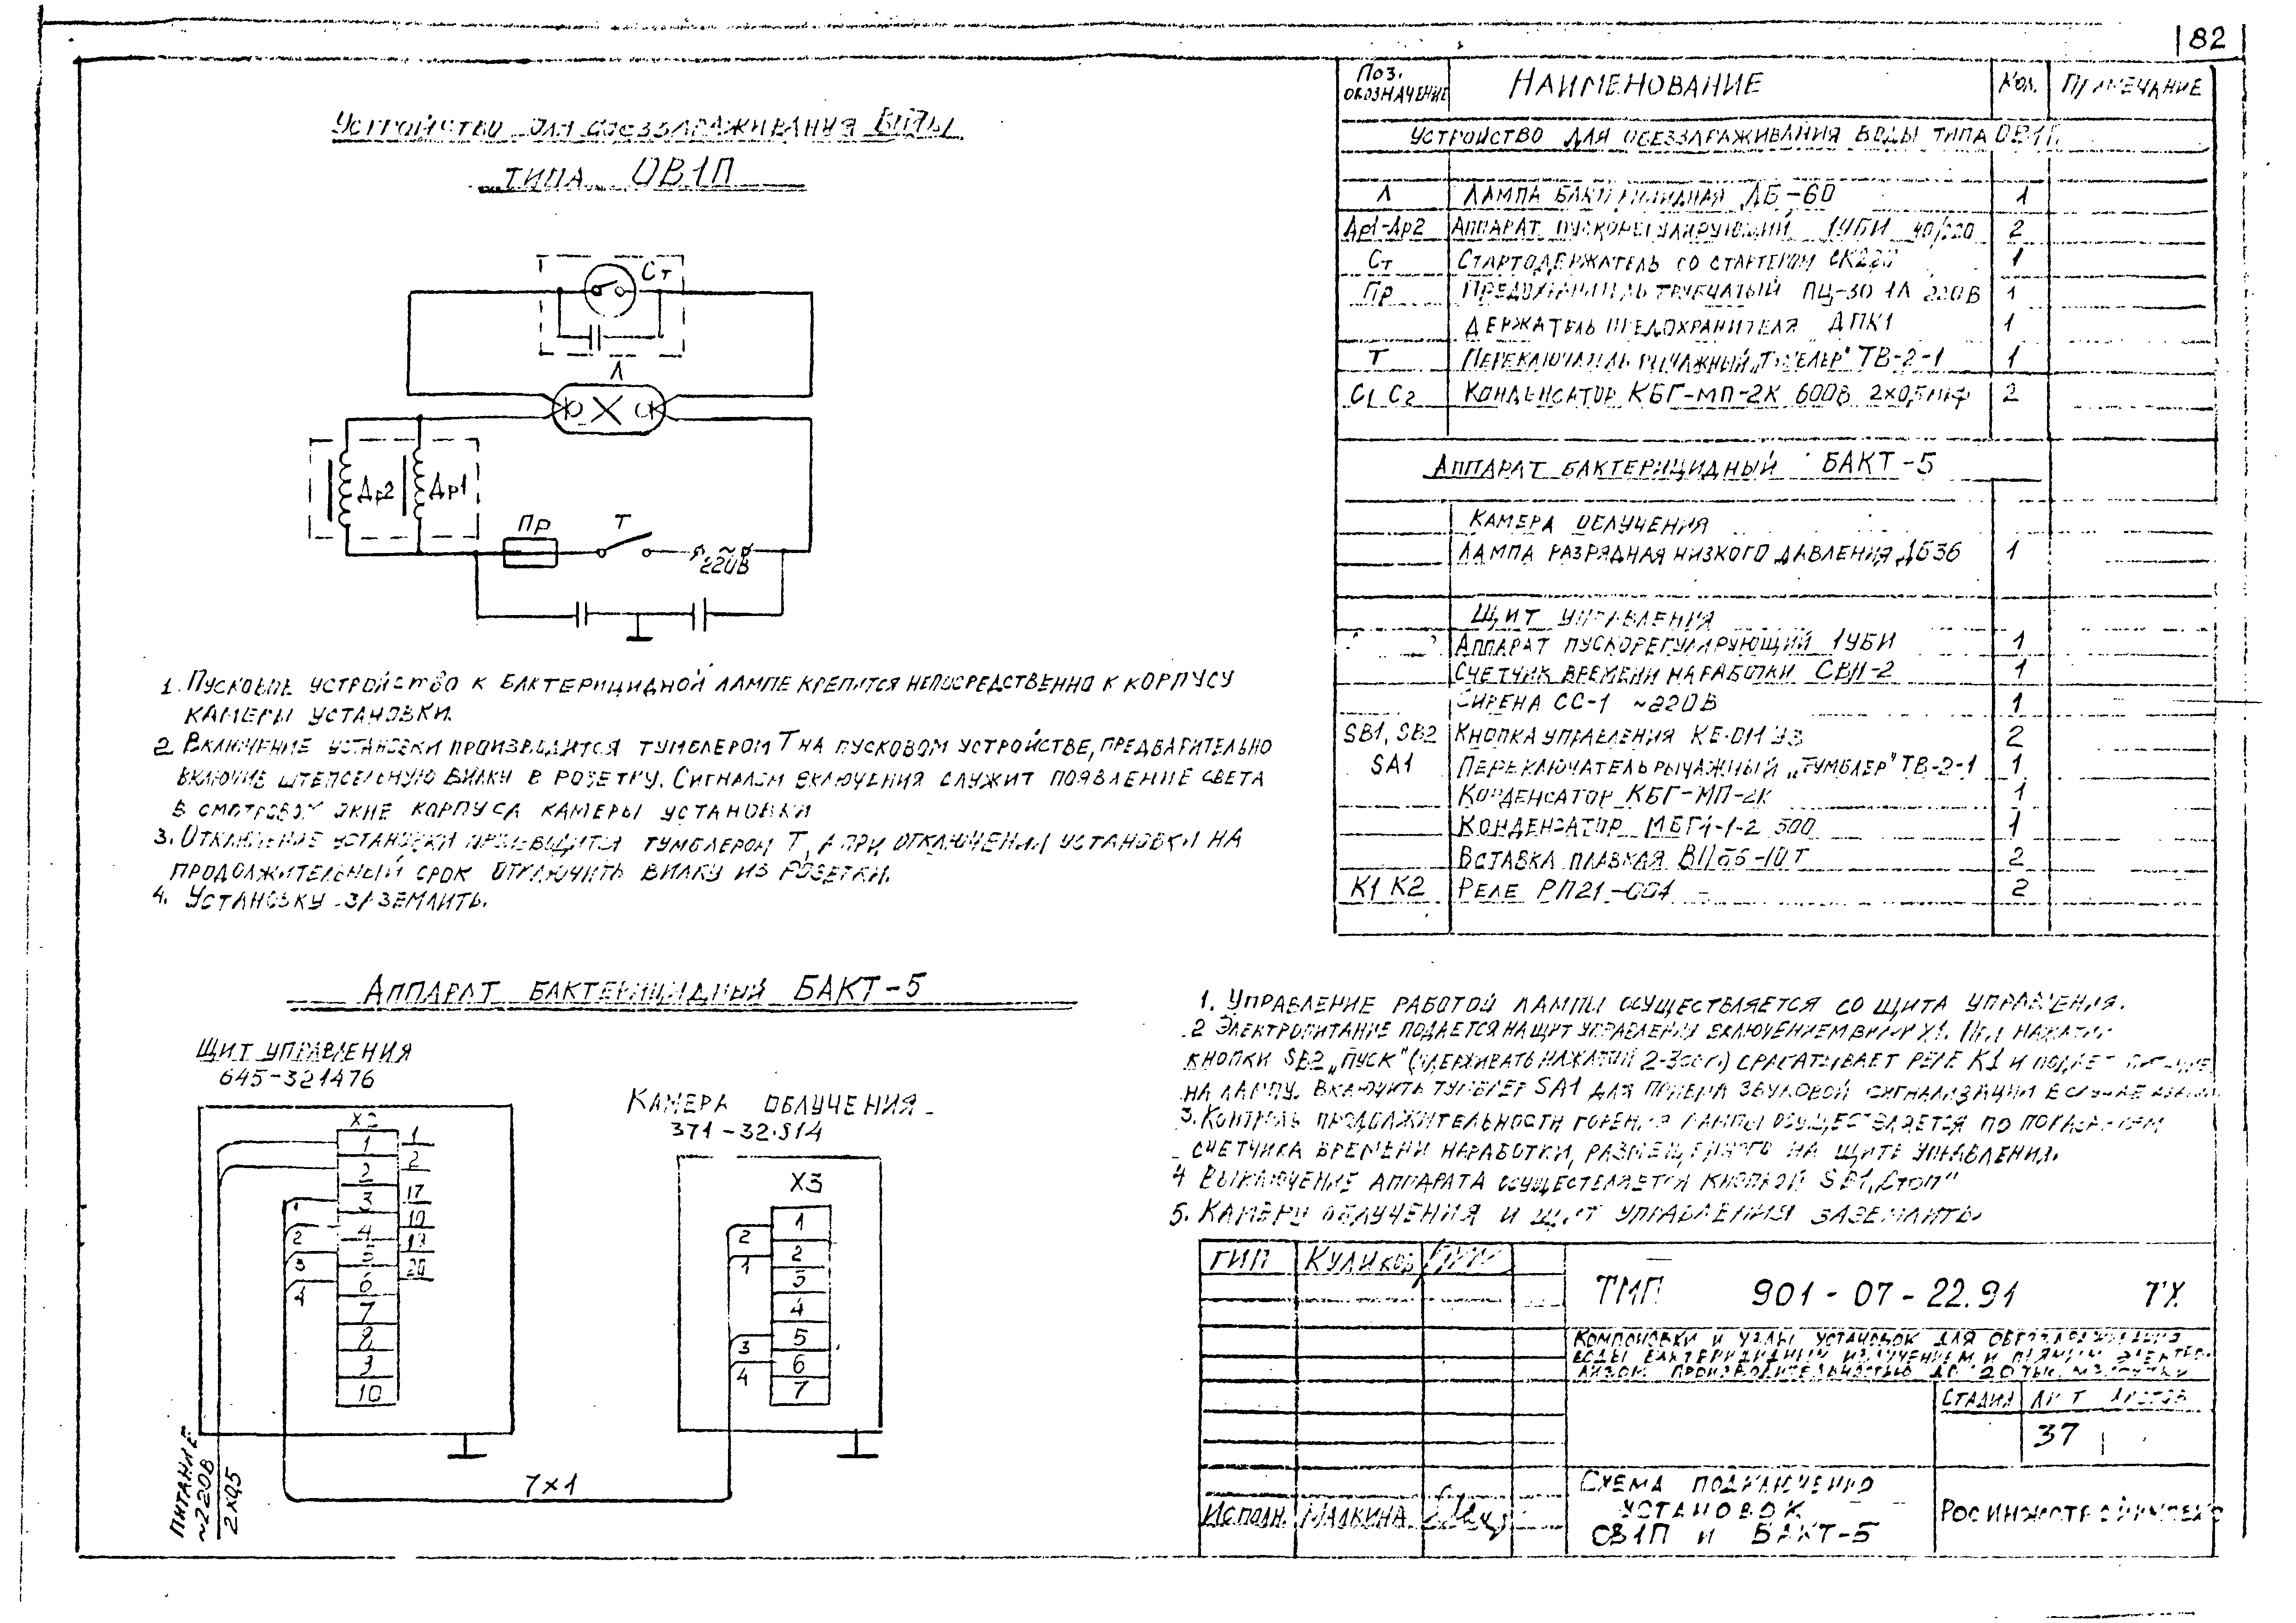 82
Устройство для обеззараживания воды
типа ОВ1П
Ст
Л
Др2
Др1
Пр
Т
~
220В
1. Пусковое устройство к бактерицидной лампе крепится непосредственно к корпусу
камеры установки.
2 Включение установки производится тумблером Т на пусковом устройстве, предварительно
включив штепсельную вилку в розетку. Сигналом включения служит появление света
в смотровом окне корпуса камеры установки
3. Отключение установки производится тумблером Т, а при отключении установки на
продолжительный срок отключить вилку из розетки.
4. Установку заземлить.
Поз. обозначение Наименование Кол. Примечание
Устройство для обеззараживания воды типа ОВ1П
Л Лампа бактерицидная ДБ-60 1
Др1-Др2 Аппарат пускорегулирующий 1УБИ 40/220 2
Ст Стартодержатель со стартером СК220 1
Пр Предохранитель трубчатый ПЦ-30 1А 220В 1
Держатель предохранителя ДПК1 1
Т Переключатель рычажный „Тумблер" ТВ-2-1 1
С1 С2 Конденсатор КБГ-МП-2К 600В 2х0,5мкф 2
Аппарат бактерицидный БАКТ-5
Камера облучения
Лампа разрядная низкого давления ДБ36 1
Щит управления
Аппарат пускорегулирующий 1УБИ 1
Счетчик времени наработки СВН-2 1
Сирена СС-1 ~220В 1
SB1, SB2 Кнопка управления КЕ-011 У3 2
SA1 Переключатель рычажный „Тумблер" ТВ-2-1 1
Конденсатор КБГ-МП-2К 1
Конденсатор МБГЧ-1-2 500 1
Вставка плавкая ВПБ6-10Т 2
К1 К2 Реле РП21-004 2
Аппарат бактерицидный БАКТ-5
Щит управления
645-321476
Х2
1 1
2 2
3 17
4 10
5 13
6 20
7
8
9
10
1
2
3
4
Питание
~220В
2х0,5
7х1
Камера облучения
371-32.514
Х3
1
2
3
4
5
6
7
2
1
3
4
1. Управление работой лампы осуществляется со щита управления.
2 Электропитание подается на щит управления включением вилки Х1. При нажатии
кнопки SB2 „Пуск" (удерживать нажатой 2-3 сек) срабатывает реле К1 и подает питание
на лампу. Включить тумблер SA1 для приема звуковой сигнализации в случае аварии
3. Контроль продолжительности горения лампы осуществляется по показаниям
счетчика времени наработки, размещенного на щите управления.
4 Выключение аппарата осуществляется кнопкой SB1 „Стоп"
5. Камеру облучения и щит управления заземлить.
ГИП Куликов
ТМП 901-07-22.91 ТХ
Компоновки и узлы установок для обеззараживания
воды бактерицидным излучением и прямым электро-
лизом производительностью до 20 тыс. м3/сутки
Стадия Лист Листов
37
Исполн. Малкина
Схема подключения
установок
ОВ1П и БАКТ-5